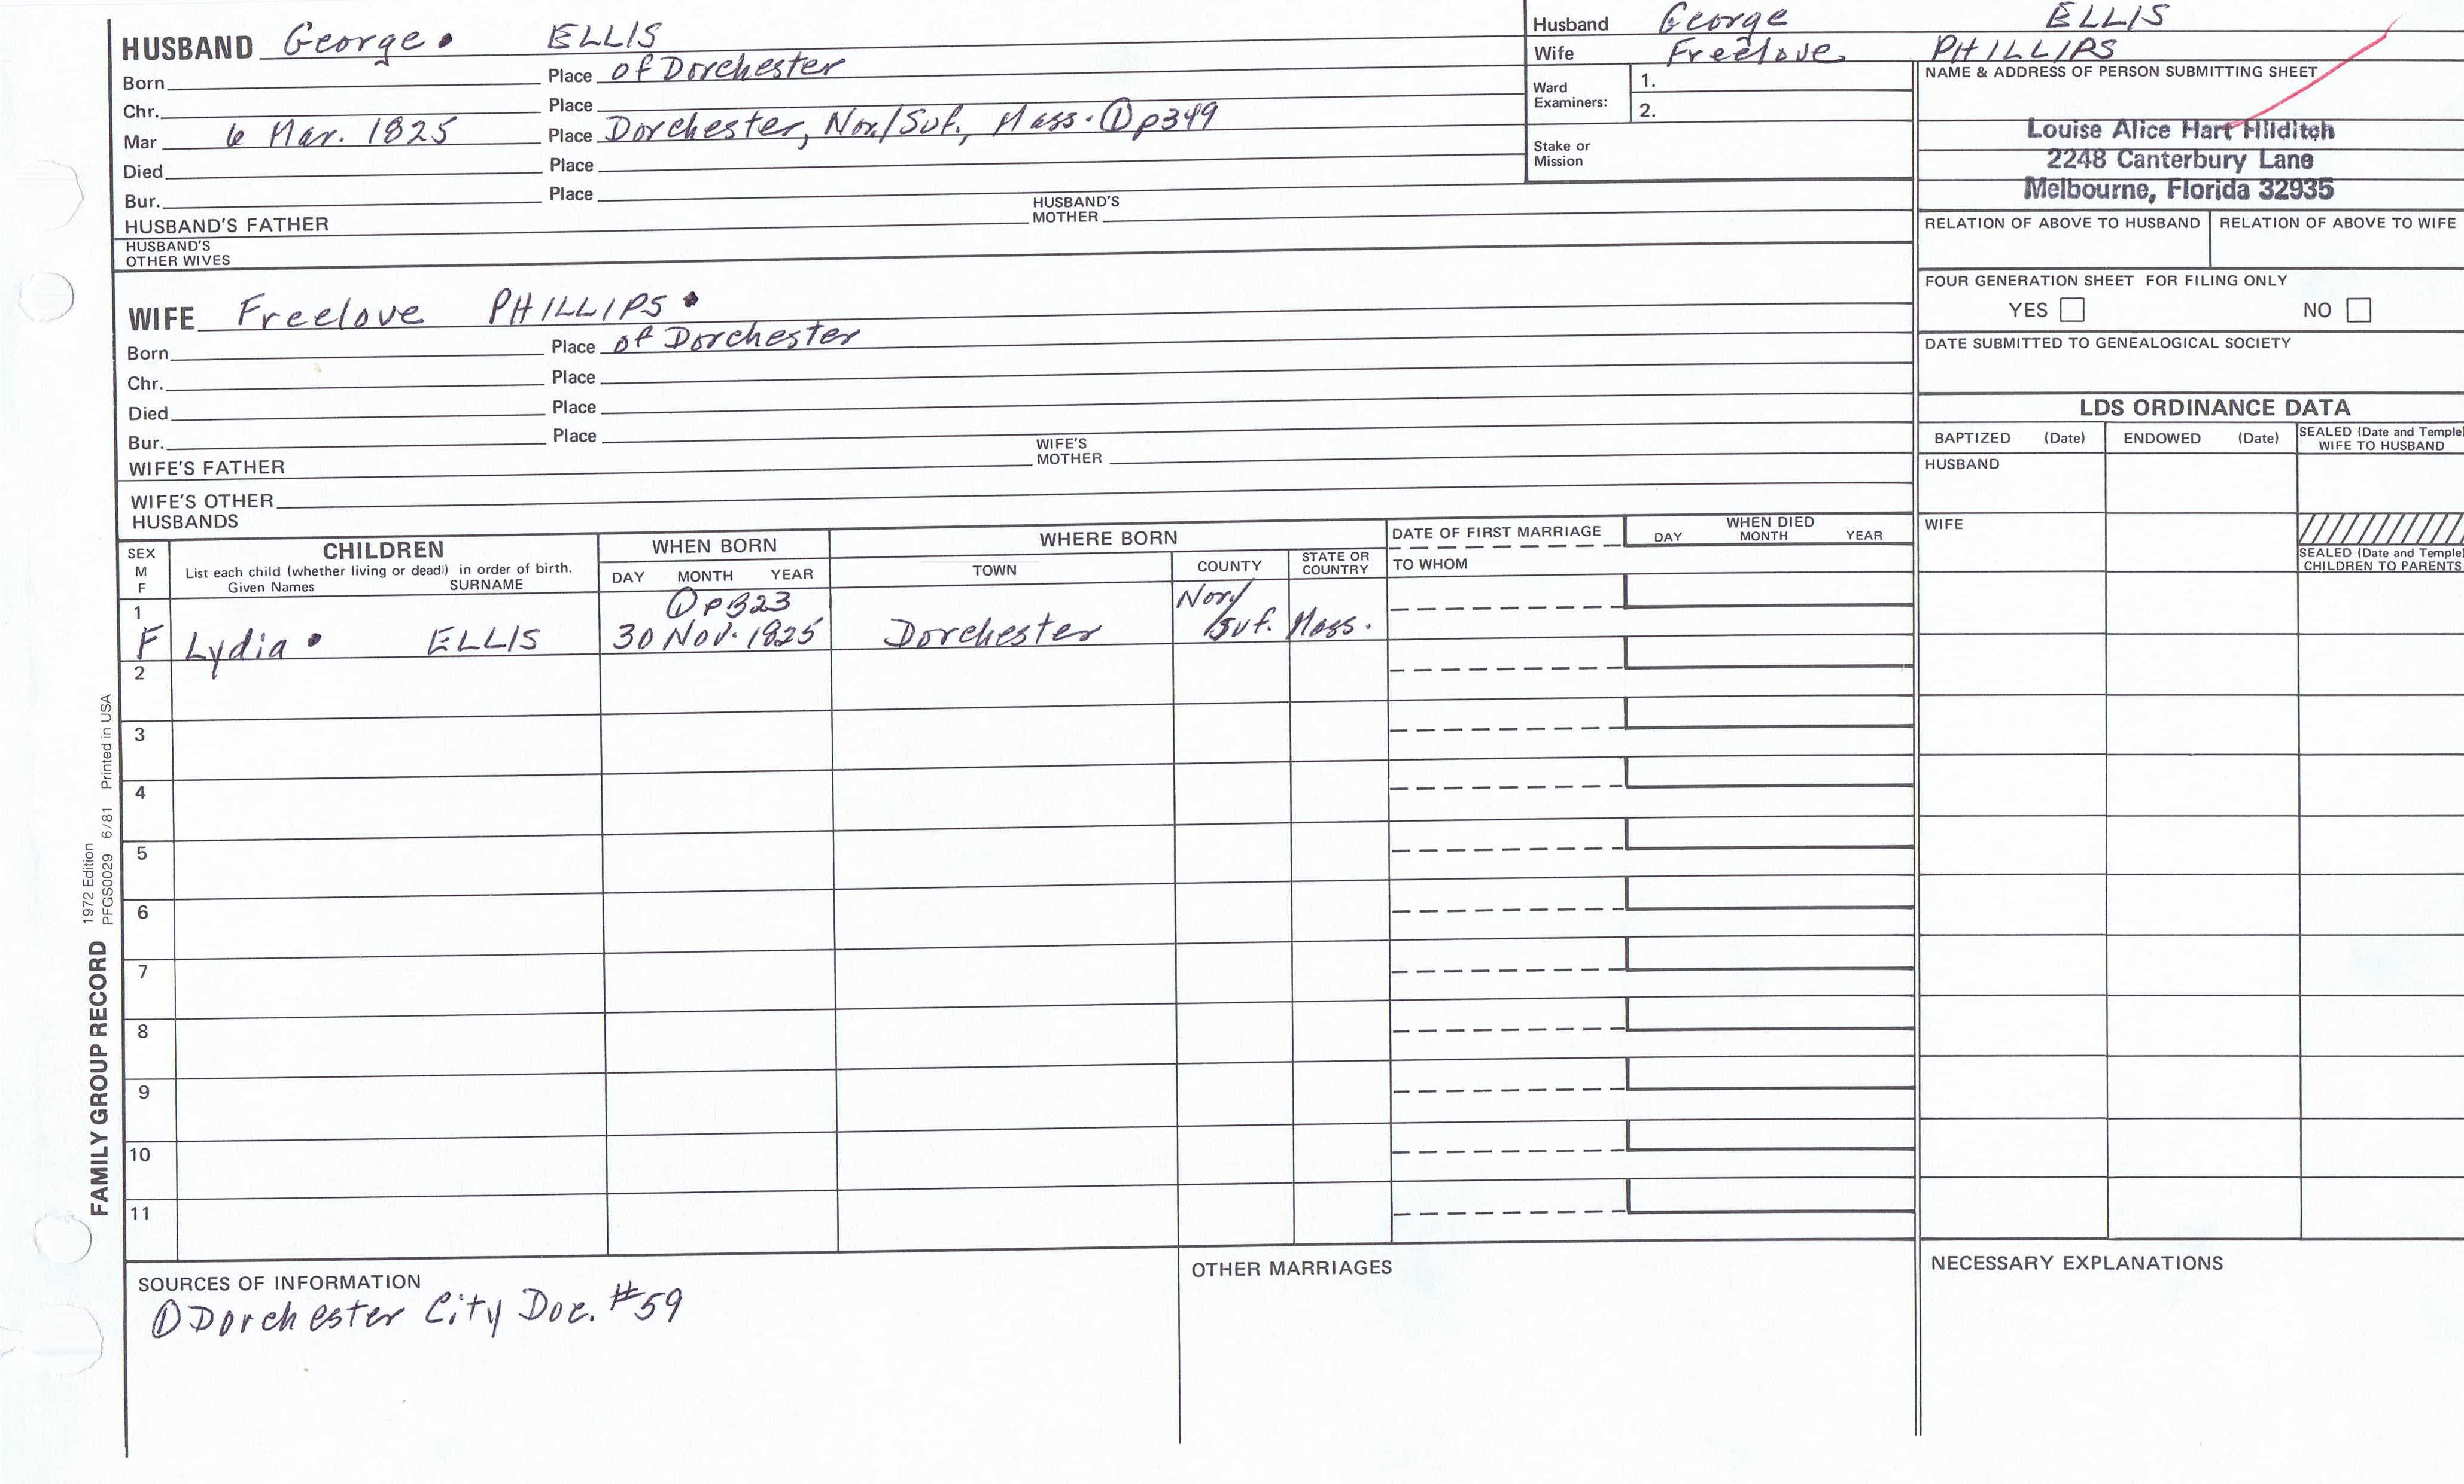 HUSBAND George • ELLIS
Born Place of Dorchester
Chr. Place
Mar 6 Mar. 1825 Place Dorchester, Nor/Suf., Mass. ① p349
Died Place
Bur. Place
HUSBAND'S FATHER HUSBAND'S MOTHER
HUSBAND'S OTHER WIVES
WIFE Freelove PHILLIPS •
Born Place of Dorchester
Chr. Place
Died Place
Bur. Place
WIFE'S FATHER WIFE'S MOTHER
WIFE'S OTHER HUSBANDS
Husband George ELLIS
Wife Freelove PHILLIPS
Ward Examiners: 1.
2.
Stake or Mission
NAME & ADDRESS OF PERSON SUBMITTING SHEET
Louise Alice Hart Hilditch
2248 Canterbury Lane
Melbourne, Florida 32935
RELATION OF ABOVE TO HUSBAND RELATION OF ABOVE TO WIFE
FOUR GENERATION SHEET FOR FILING ONLY
YES NO
DATE SUBMITTED TO GENEALOGICAL SOCIETY
LDS ORDINANCE DATA
BAPTIZED (Date) ENDOWED (Date) SEALED (Date and Temple) WIFE TO HUSBAND
HUSBAND
WIFE
SEALED (Date and Temple) CHILDREN TO PARENTS
SEX M F
CHILDREN
List each child (whether living or dead) in order of birth.
Given Names SURNAME
WHEN BORN
DAY MONTH YEAR
WHERE BORN
TOWN COUNTY STATE OR COUNTRY
DATE OF FIRST MARRIAGE
TO WHOM
WHEN DIED
DAY MONTH YEAR
1 ① p323 Nor/
F Lydia • ELLIS 30 Nov. 1825 Dorchester Suf. Mass.
2
3
4
5
6
7
8
9
10
11
FAMILY GROUP RECORD
1972 Edition
PFGS0029 6/81 Printed in USA
SOURCES OF INFORMATION
① Dorchester City Doc. #59
OTHER MARRIAGES
NECESSARY EXPLANATIONS